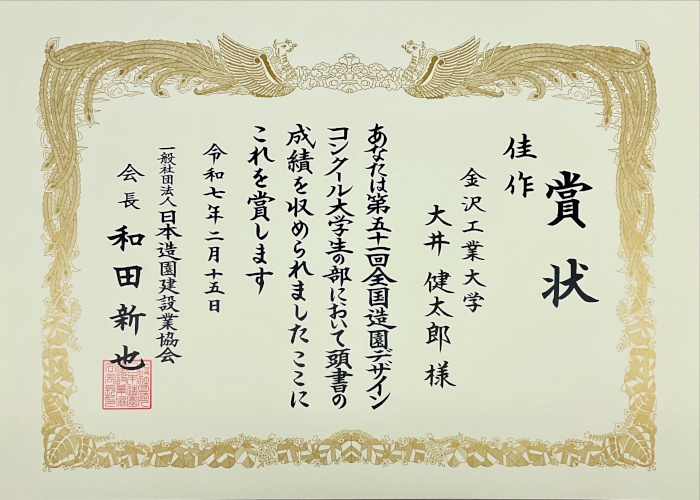 賞状
佳作
金沢工業大学
大井健太郎様
あなたは第五十一回全国造園デザイン
コンクール大学生の部において頭書の
成績を収められましたここに
これを賞します
令和七年二月十五日
一般社団法人日本造園建設業協会
会長 和田新也